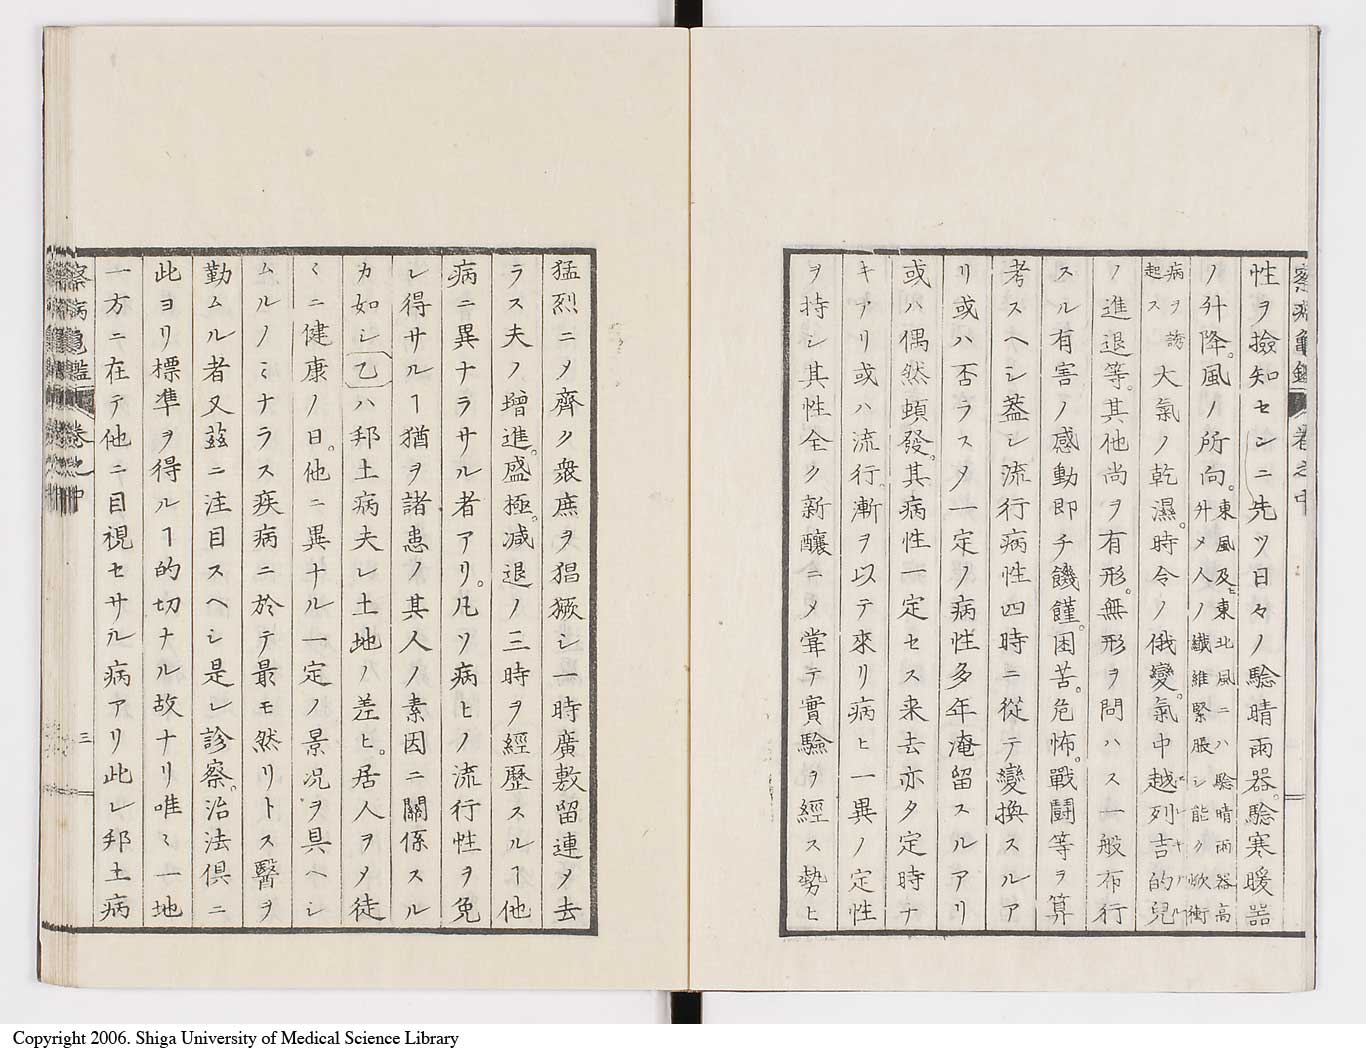 察病龜鑑 卷之中
性ヲ撿知センニ先ツ日々ノ驗晴雨器。驗寒暖器
ノ升降。風ノ所向。東風及ヒ東北風ニハ驗晴雨器高
升メ人ノ纖維緊脹シ能ク焮衝
病ヲ誘
起ス
大氣ノ乾濕。時令ノ俄變。氣中越列吉的兒
ノ進退等。其他尚ヲ有形。無形ヲ問ハス一般布行
スル有害ノ感動即チ饑饉。困苦。危怖。戰鬪等ヲ算
考スヘシ蓋シ流行病性四時ニ從テ變換スルア
リ或ハ否ラスメ一定ノ病性多年淹留スルアリ
或ハ偶然頓發。其病性一定セス来去亦タ定時ナ
キアリ或ハ流行漸ヲ以テ來リ病ヒ一異ノ定性
ヲ持シ其性全ク新釀ニメ甞テ實驗ヲ經ス勢ヒ
猛烈ニメ齊ク衆庶ヲ猖獗シ一時廣敷留連メ去
ラス夫ノ增進。盛極。减退ノ三時ヲ經歷スルヿ他
病ニ異ナラサル者アリ。凡ソ病ヒノ流行性ヲ免
レ得サルヿ猶ヲ諸恙ノ其人ノ素因ニ關係スル
カ如シ乙ハ邦土病夫レ土地ノ差ヒ。居人ヲメ徒
ミニ健康ノ日。他ニ異ナル一定ノ景况ヲ具ヘシ
ムルノミナラス疾病ニ於テ最モ然リトス醫ヲ
勤ムル者又茲ニ注目スヘシ是レ診察。治法俱ニ
此ヨリ標準ヲ得ルヿ的切ナル故ナリ唯ミ一地
一方ニ在テ他ニ目視セサル病アリ此レ邦土病
察病龜鑑 卷之中
三
Copyright 2006. Shiga University of Medical Science Library